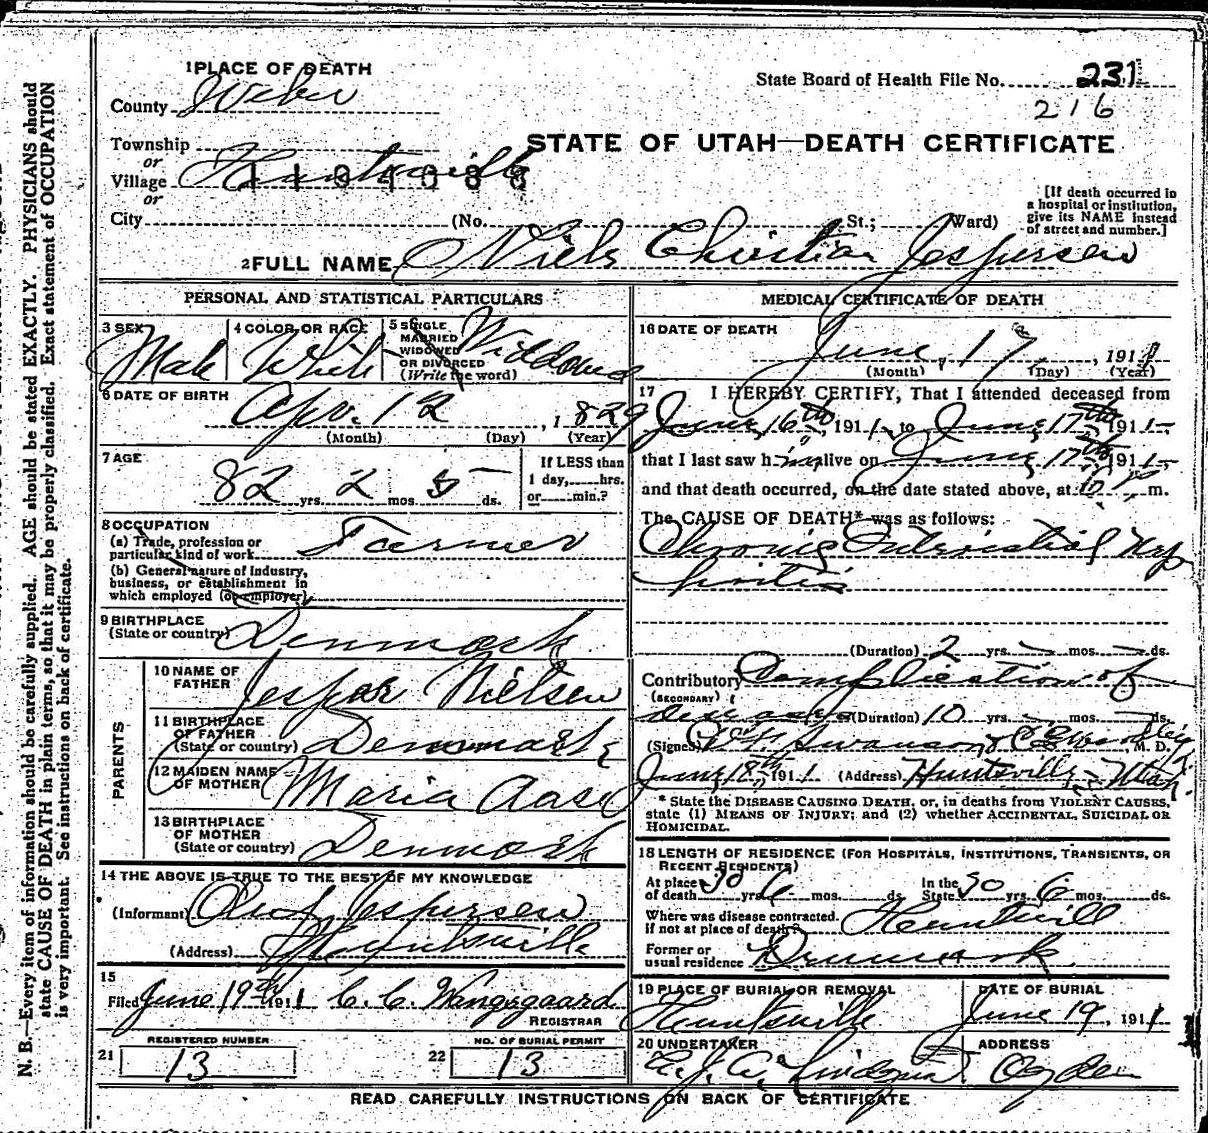 1 PLACE OF DEATH
County Weber
State Board of Health File No. 231
216
Township
or
Village Huntsville
or
STATE OF UTAH—DEATH CERTIFICATE
City (No. St.; Ward)
[If death occurred in
a hospital or institution,
give its NAME instead
of street and number.]
2 FULL NAME Niels Christian Jespersen
PERSONAL AND STATISTICAL PARTICULARS
3 SEX Male
4 COLOR OR RACE White
5 SINGLE
MARRIED
WIDOWED
OR DIVORCED
(Write the word) Widdowed
6 DATE OF BIRTH
Apr. 12, 1829
(Month) (Day) (Year)
7 AGE
82 yrs. 2 mos. 5 ds.
If LESS than
1 day, hrs.
or min.?
8 OCCUPATION
(a) Trade, profession or
particular kind of work Farmer
(b) General nature of industry,
business, or establishment in
which employed (or employer)
9 BIRTHPLACE
(State or country) Denmark
PARENTS
10 NAME OF
FATHER Jesper Nielsen
11 BIRTHPLACE
OF FATHER
(State or country) Denmark
12 MAIDEN NAME
OF MOTHER Maria Aase
13 BIRTHPLACE
OF MOTHER
(State or country) Denmark
14 THE ABOVE IS TRUE TO THE BEST OF MY KNOWLEDGE
(Informant) Olof Jespersen
(Address) Huntsville
15
Filed June 19th 1911 C. C. Wangsgaard
REGISTRAR
21 REGISTERED NUMBER
13
22 NO. OF BURIAL PERMIT
13
MEDICAL CERTIFICATE OF DEATH
16 DATE OF DEATH
June, 17, 1911
(Month) (Day) (Year)
17 I HEREBY CERTIFY, That I attended deceased from
June, 16th, 1911, to June, 17th, 1911,
that I last saw him alive on June, 17th, 1911,
and that death occurred, on the date stated above, at 10 P. m.
The CAUSE OF DEATH* was as follows:
Chronic Interistial Nep
hritis
(Duration) 2 yrs. — mos. — ds.
Contributory Complication of
(SECONDARY)
diseases (Duration) 10 yrs. — mos. ds.
(Signed) Swanson & M. D.
June, 18th, 1911 (Address) Huntsville, Utah.
* State the DISEASE CAUSING DEATH, or, in deaths from VIOLENT CAUSES,
state (1) MEANS OF INJURY; and (2) whether ACCIDENTAL, SUICIDAL OR
HOMICIDAL.
18 LENGTH OF RESIDENCE (FOR HOSPITALS, INSTITUTIONS, TRANSIENTS, OR
RECENT RESIDENTS)
At place
of death 30 yrs. 6 mos. ds.
In the
State 30 yrs. 6 mos. ds.
Where was disease contracted.
If not at place of death? Huntsvill
Former or
usual residence Denmark
19 PLACE OF BURIAL OR REMOVAL
Huntsville
DATE OF BURIAL
June 19, 1911
20 UNDERTAKER
ADDRESS
Ogden
READ CAREFULLY INSTRUCTIONS ON BACK OF CERTIFICATE
N. B.—Every item of information should be carefully supplied. AGE should be stated EXACTLY. PHYSICIANS should
state CAUSE OF DEATH in plain terms, so that it may be properly classified. Exact statement of OCCUPATION
is very important. See instructions on back of certificate.